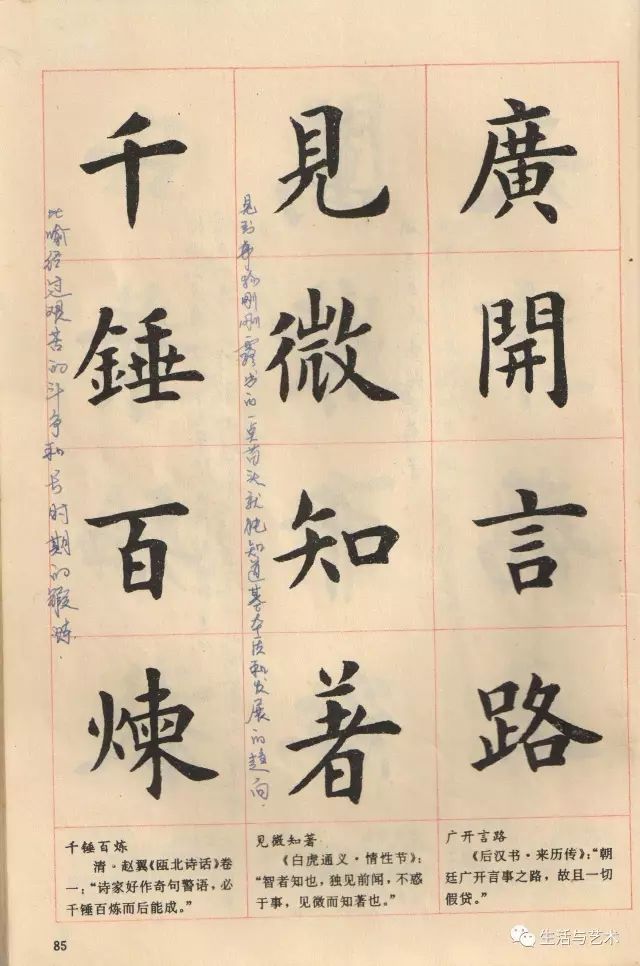 廣開言路
見微知著
見到事物剛剛露出的一点苗头就能知道其本质和发展的趋向.
千錘百煉
比喻经过艰苦的斗争和长时期的锻炼.
千锤百炼
清·赵翼《瓯北诗话》卷
一：“诗家好作奇句警语，必
千锤百炼而后能成。”
见微知著
《白虎通义·情性节》：
“智者知也，独见前闻，不惑
于事，见微而知著也。”
广开言路
《后汉书·来历传》：“朝
廷广开言事之路，故且一切
假贷。”
85
生活与艺术